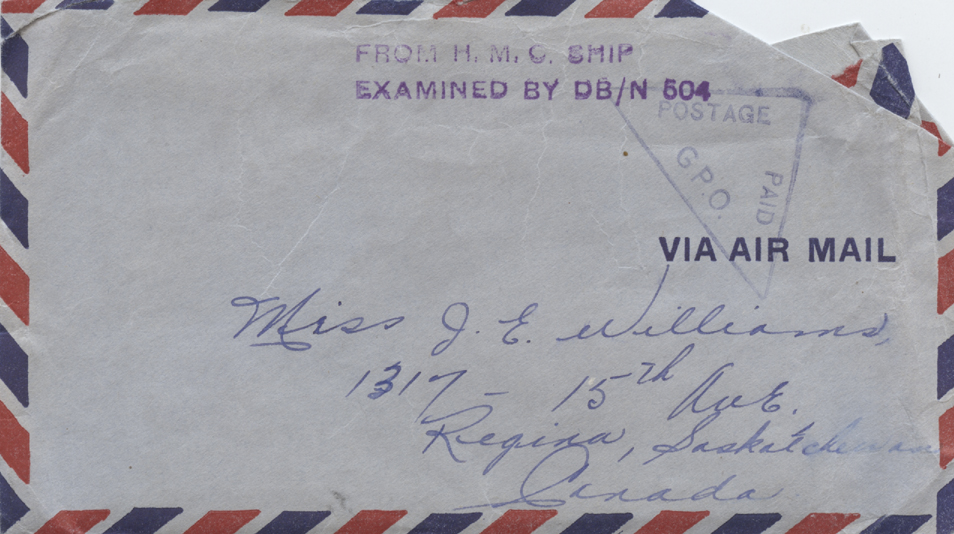 FROM H. M. C. SHIP
EXAMINED BY DB/N 504
POSTAGE
PAID
G.P.O.
VIA AIR MAIL
Miss J. E. Williams,
1317 - 15th Ave.
Regina, Saskatchewan
Canada